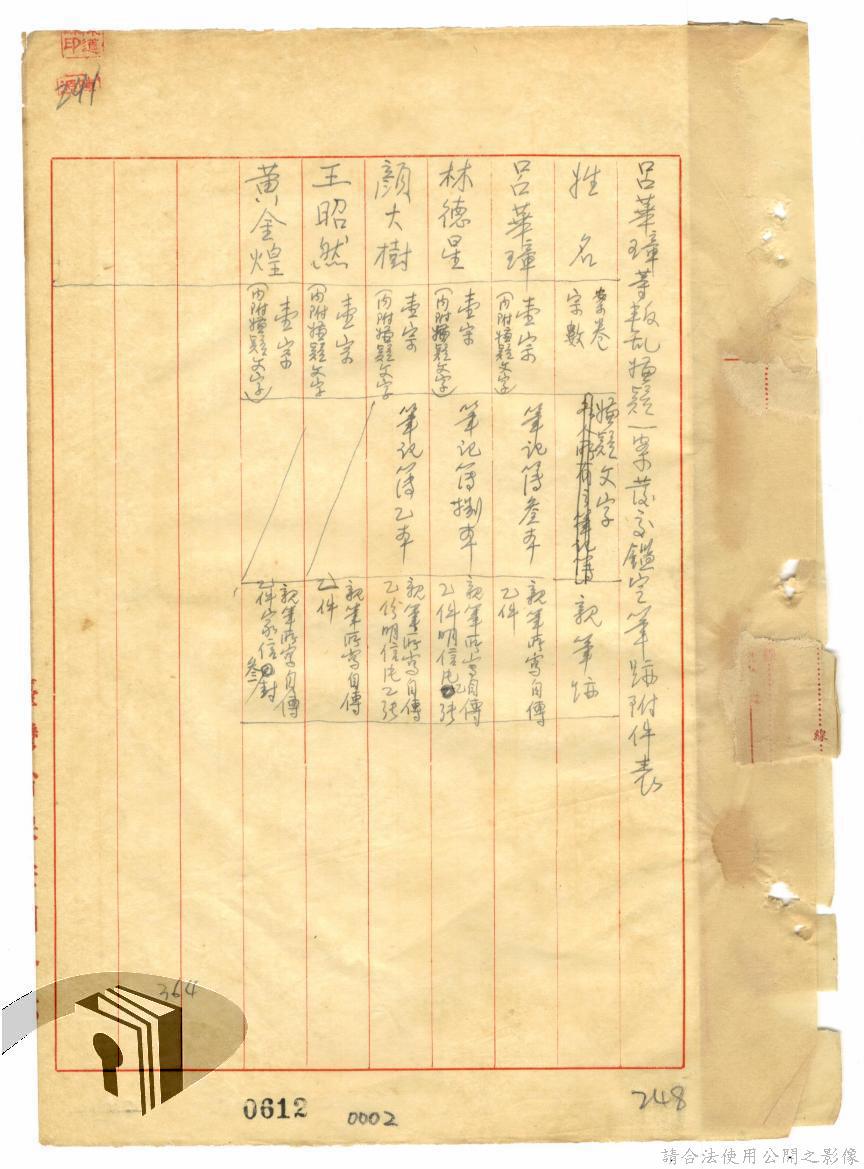 呂華璋等叛亂嫌疑一案送請鑑定筆跡附件表
姓名
案卷宗數
嫌疑文字
親筆跡
呂華璋
壹宗
(內附嫌疑文字)
筆記簿叁本
親筆所寫自傳
乙件
林德星
壹宗
(內附嫌疑文字)
筆記簿捌本
親筆所寫自傳
乙件明信片乙張
顏大樹
壹宗
(內附嫌疑文字)
筆記簿乙本
親筆所寫自傳
乙份明信片乙張
王昭然
壹宗
(內附嫌疑文字)
親筆所寫自傳
乙件
黃金煌
壹宗
(內附嫌疑文字)
親筆所寫自傳
乙件家信叁封
241
線
364
0612
0002
248
請合法使用公開之影像